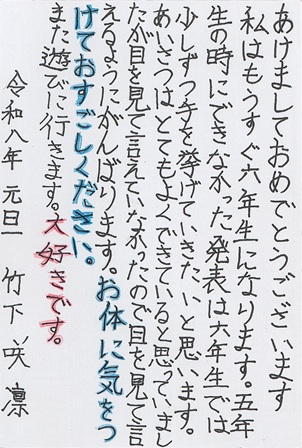 あけましておめでとうございます
私はもうすぐ六年生になります。五年
生の時にできなかった発表は六年生では
少しずつ手を挙げていきたいと思います。
あいさつはとてもよくできていると思っていまし
たが目を見て言えていなかったので目を見て言
えるようにがんばります。お体に気をつ
けておすごしください。
また遊びに行きます。大好きです。
令和八年 元旦 竹下 咲凛